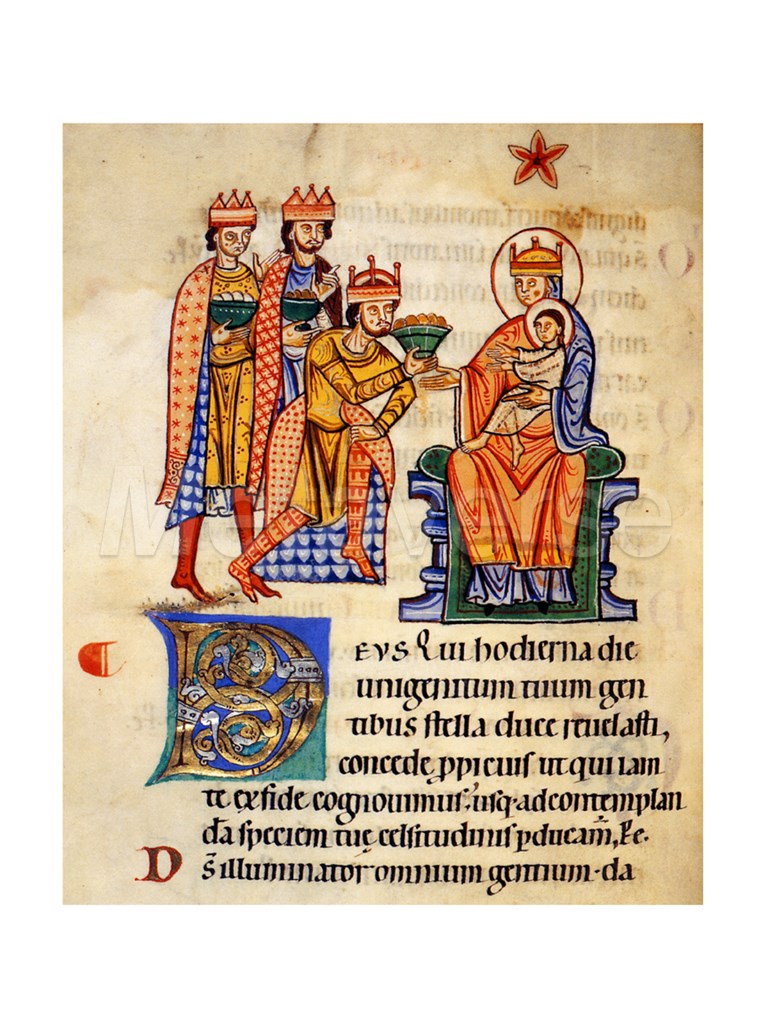 DEUS Qui hodierna die
unigenitum tuum gen
tibus stella duce reuelasti,
concede ꝓpicius ut qui iam
te ex fide cognouimus, usq; ad contemplan
dā speciem tuę celsitudinis ꝑducam̄, P̄e.
D̄s illuminator omnium gentium. da